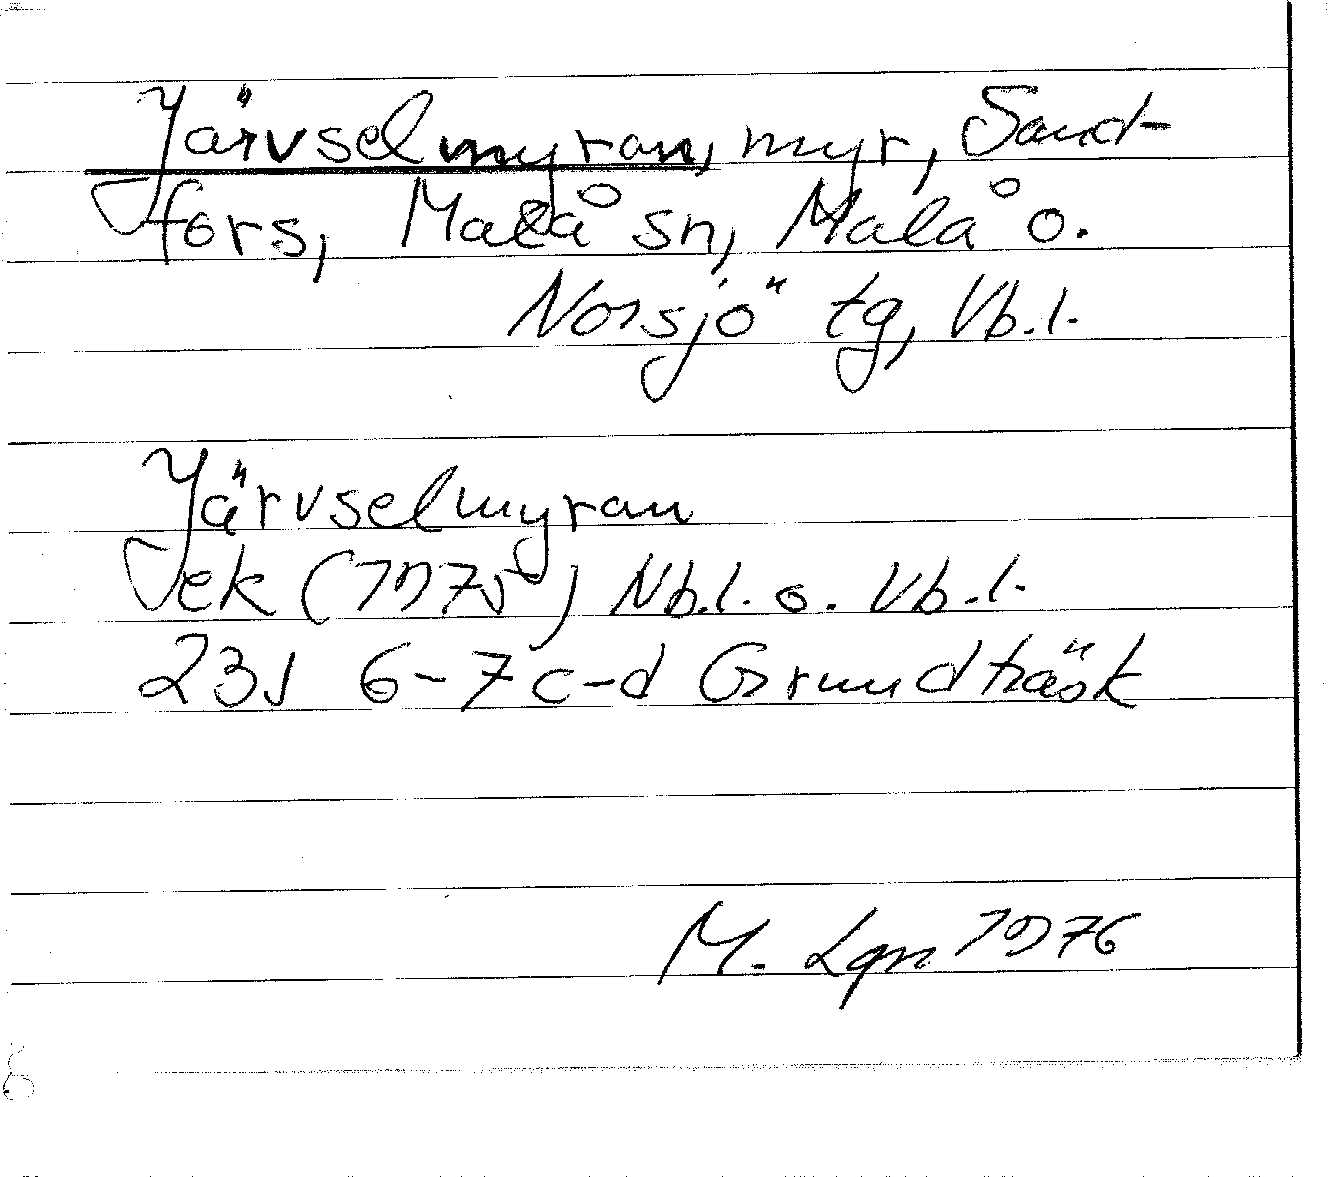 Järvselmyran, myr, Sand-
fors, Malå sn, Malå o.
Norsjö tg, Vb.l.
Järvselmyran
ek (1975) Nb.l. o. Vb.l.
23J 6-7 c-d Grundträsk
M. Lgn 1976